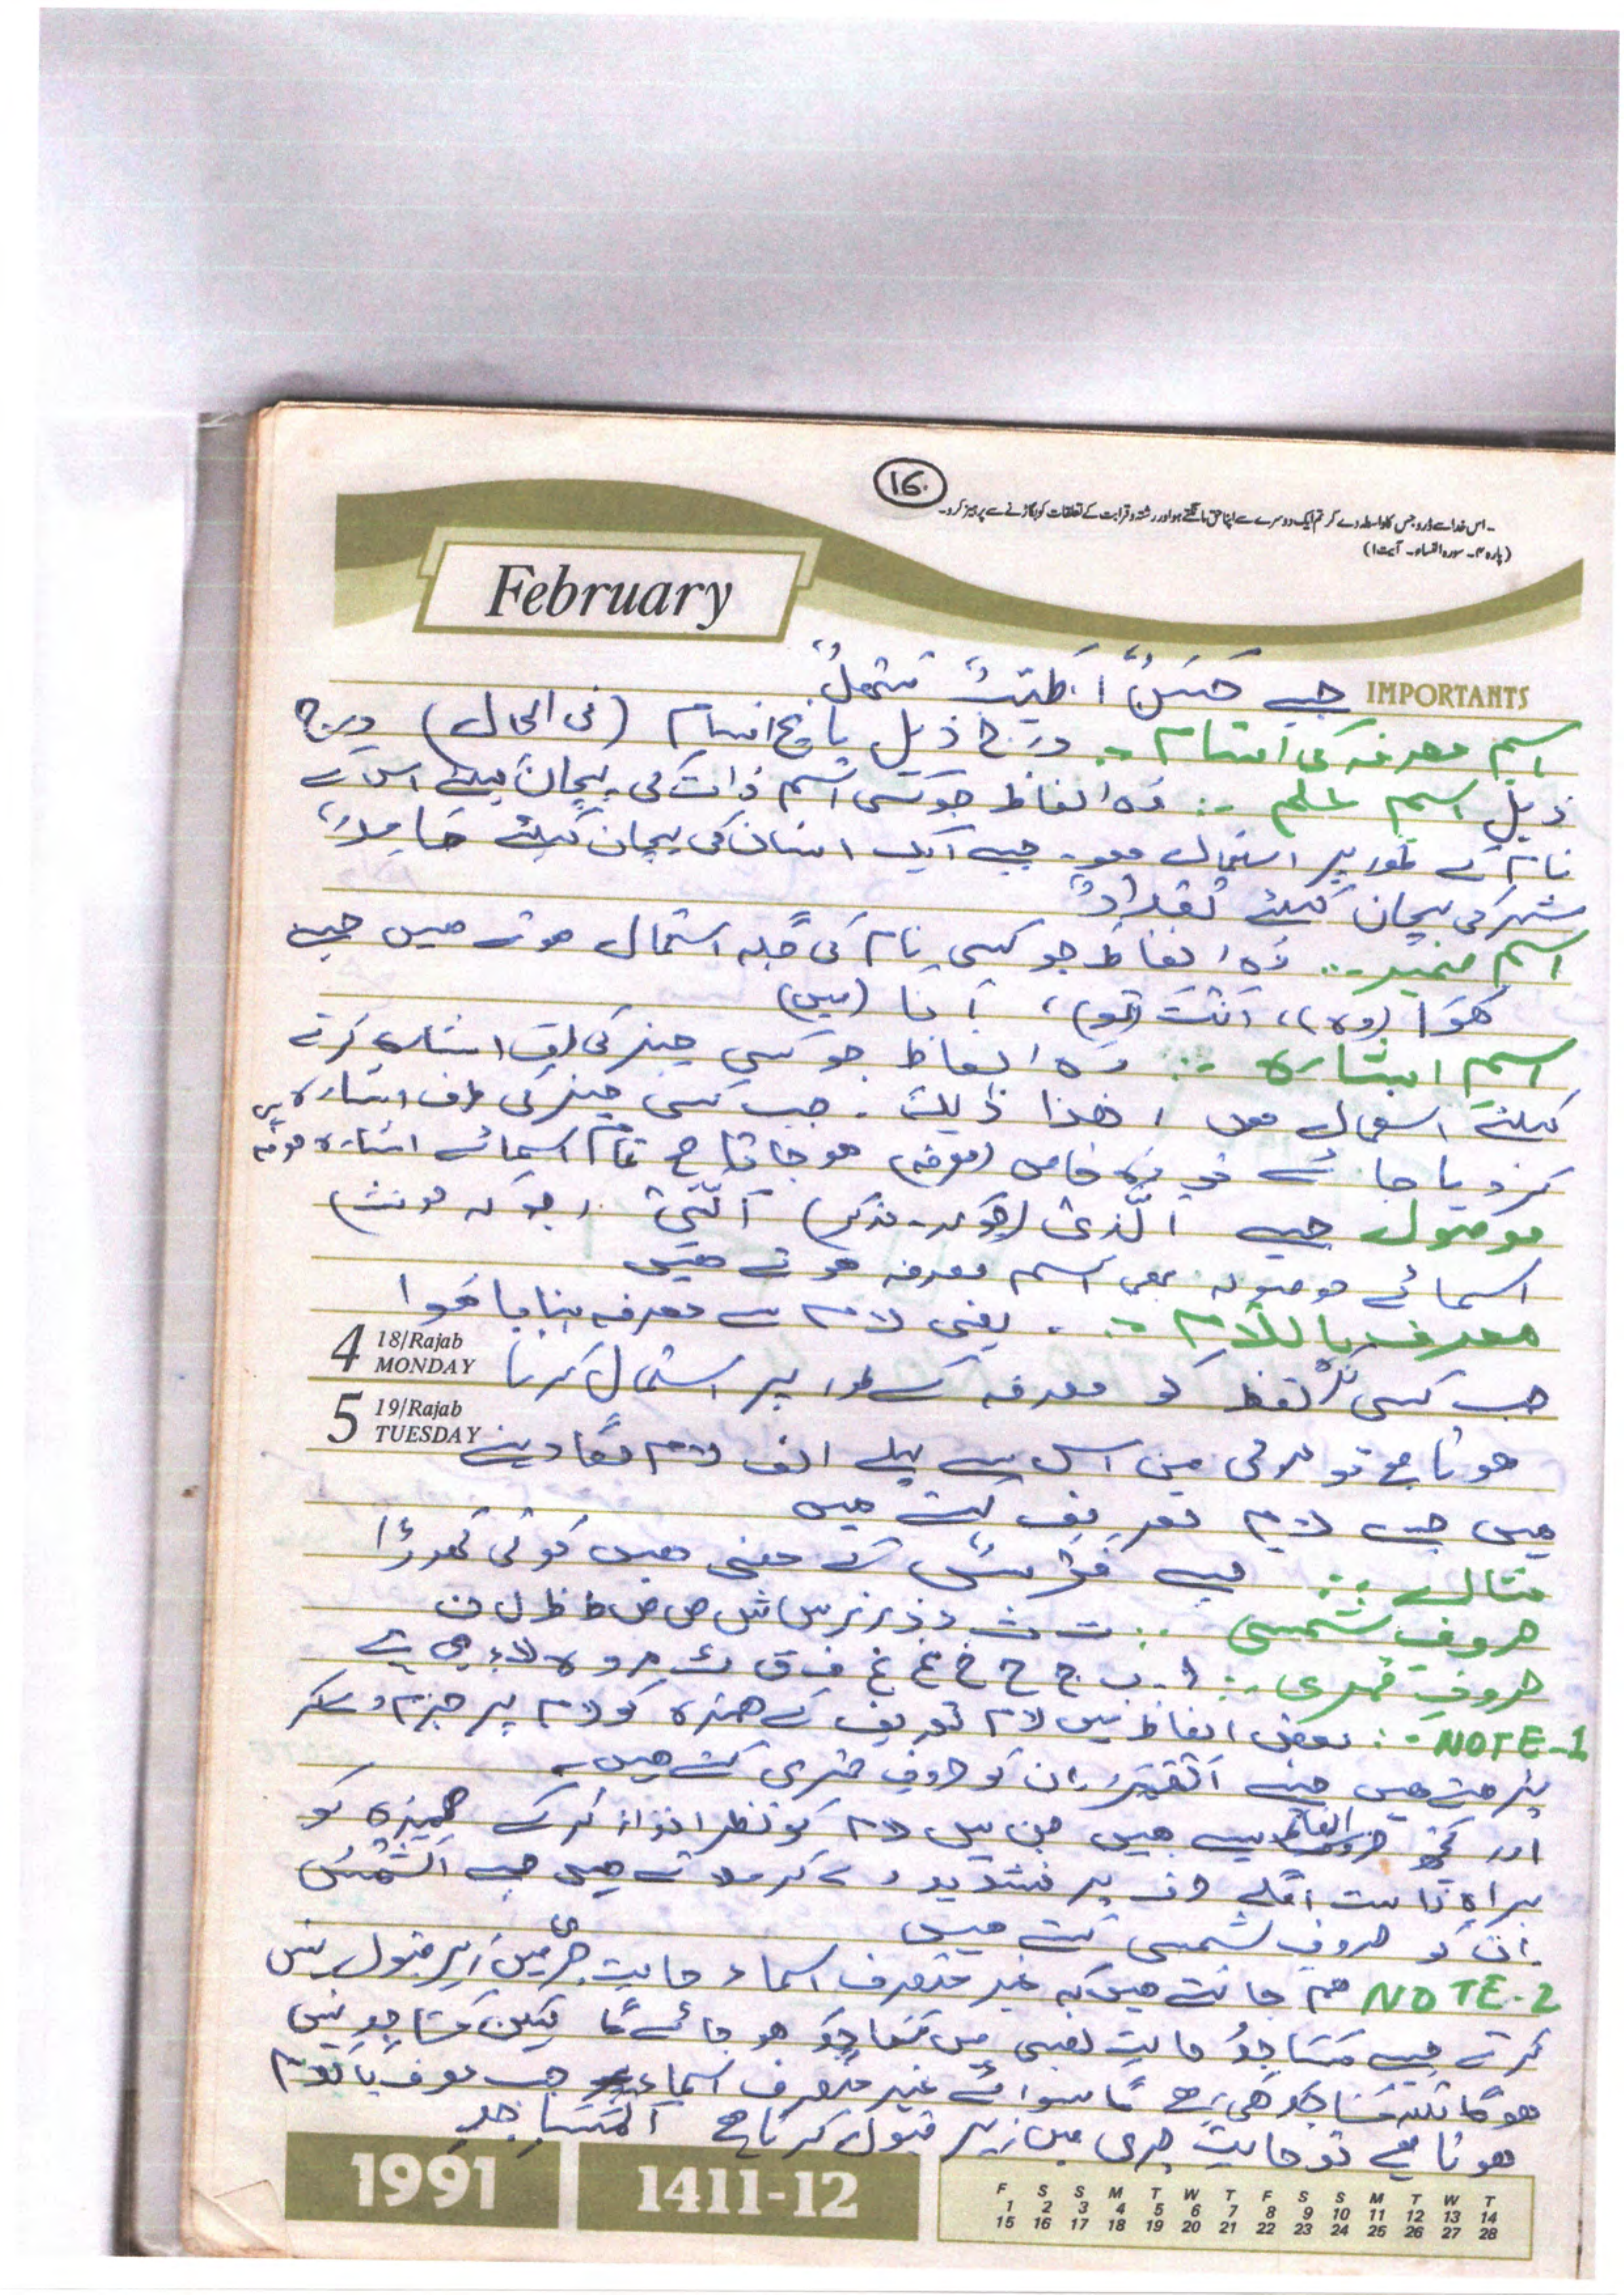 16
۔ اس خدا سے ڈرو جس کا واسطہ دے کر تم ایک دوسرے سے اپنا حق مانگتے ہو اور رشتہ و قرابت کے تعلقات کو بگاڑنے سے پرہیز کرو۔
(پارہ ۴۔ سورہ النساء۔ آیت ۱)
February
IMPORTANTS
جیسے حَسَنٌ، طَیِّبٌ
اسم معرفہ کی اقسام :۔ درج ذیل پانچ اقسام (فی الحال) درج
ذیل اسم علم :۔ وہ الفاظ جو کسی اسم ذات کی پہچان کیلئے اس کے
نام کے طور پر استعمال ہو۔ جیسے ایک انسان کی پہچان کیلئے حَامِدٌ،
شہر کی پہچان کیلئے بَغْدَادُ
اسم ضمیر :۔ وہ الفاظ جو کسی نام کی جگہ استعمال ہوتے ہیں جیسے
ھُوَا (وہ)، اَنْتَ (تو)، اَنَا (میں)
اسم اشارہ :۔ وہ الفاظ جو کسی چیز کی طرف اشارہ کرنے
کیلئے استعمال ہوں، ھٰذا ذٰلِکَ ۔ جب کسی چیز کی طرف اشارہ
کر دیا جائے تو وہ خاص (معرفہ) ہو جاتا ہے تمام اسمائے اشارہ معرفہ ہیں
موصول جیسے اَلَّذِیْ (جو کہ ۔ مذکر) اَلَّتِیْ (جو کہ مونث)
اسمائے موصولہ بھی اسم معرفہ ہوتے ہیں
معرف باللّام :۔ یعنی لام سے معرفہ بنایا ہوا
4 18/Rajab MONDAY
جب کسی نکرہ لفظ کو معرفہ کے طور پر استعمال کرنا
5 19/Rajab TUESDAY
ہوتا ہے تو عربی میں اس سے پہلے الف لام لگا دیتے
ہیں جسے لام تعریف کہتے ہیں
مثال :۔ جیسے فَرَسٌ کے معنی ہیں کوئی گھوڑا
حروف شمسی :۔ ت ث د ذ ر ز س ش ص ض ط ظ ل ن
حروف قمری :۔ ا ۔ ب ج ح خ ع غ ف ق ک م و ہ ء ی ے
NOTE-1 :۔ بعض الفاظ میں لام تعریف کے ھمزہ کو لام پر جزم دے کر
پڑھتے ہیں جیسے اَلْقَمَرُ، ان کو حروف قمری کہتے ہیں۔
اور کچھ الفاظ ایسے ہیں جن میں لام کو نظر انداز کر کے ھمزہ کو
براہ راست اگلے حرف پر تشدید دے کر ملاتے ہیں جیسے اَلشَّمْسُ
ان کو حروف شمسی کہتے ہیں
NOTE-2 ہم جانتے ہیں کہ غیر منصرف اسماء حالت جری میں زیر قبول نہیں
کرتے جیسے مَسَاجِدُ حالت نصبی میں مَسَاجِدَ ہو جائے گا لیکن مَسَاجِدِ نہیں
ہوگا بلکہ مَسَاجِدَ ہی رہے گا سوائے غیر منصرف اسماء جب معرف باللام
ہوتا ہے تو حالت جری میں زیر قبول کرتا ہے اَلْمَسَاجِدِ
1991
1411-12
F S S M T W T F S S M T W T
1 2 3 4 5 6 7 8 9 10 11 12 13 14
15 16 17 18 19 20 21 22 23 24 25 26 27 28